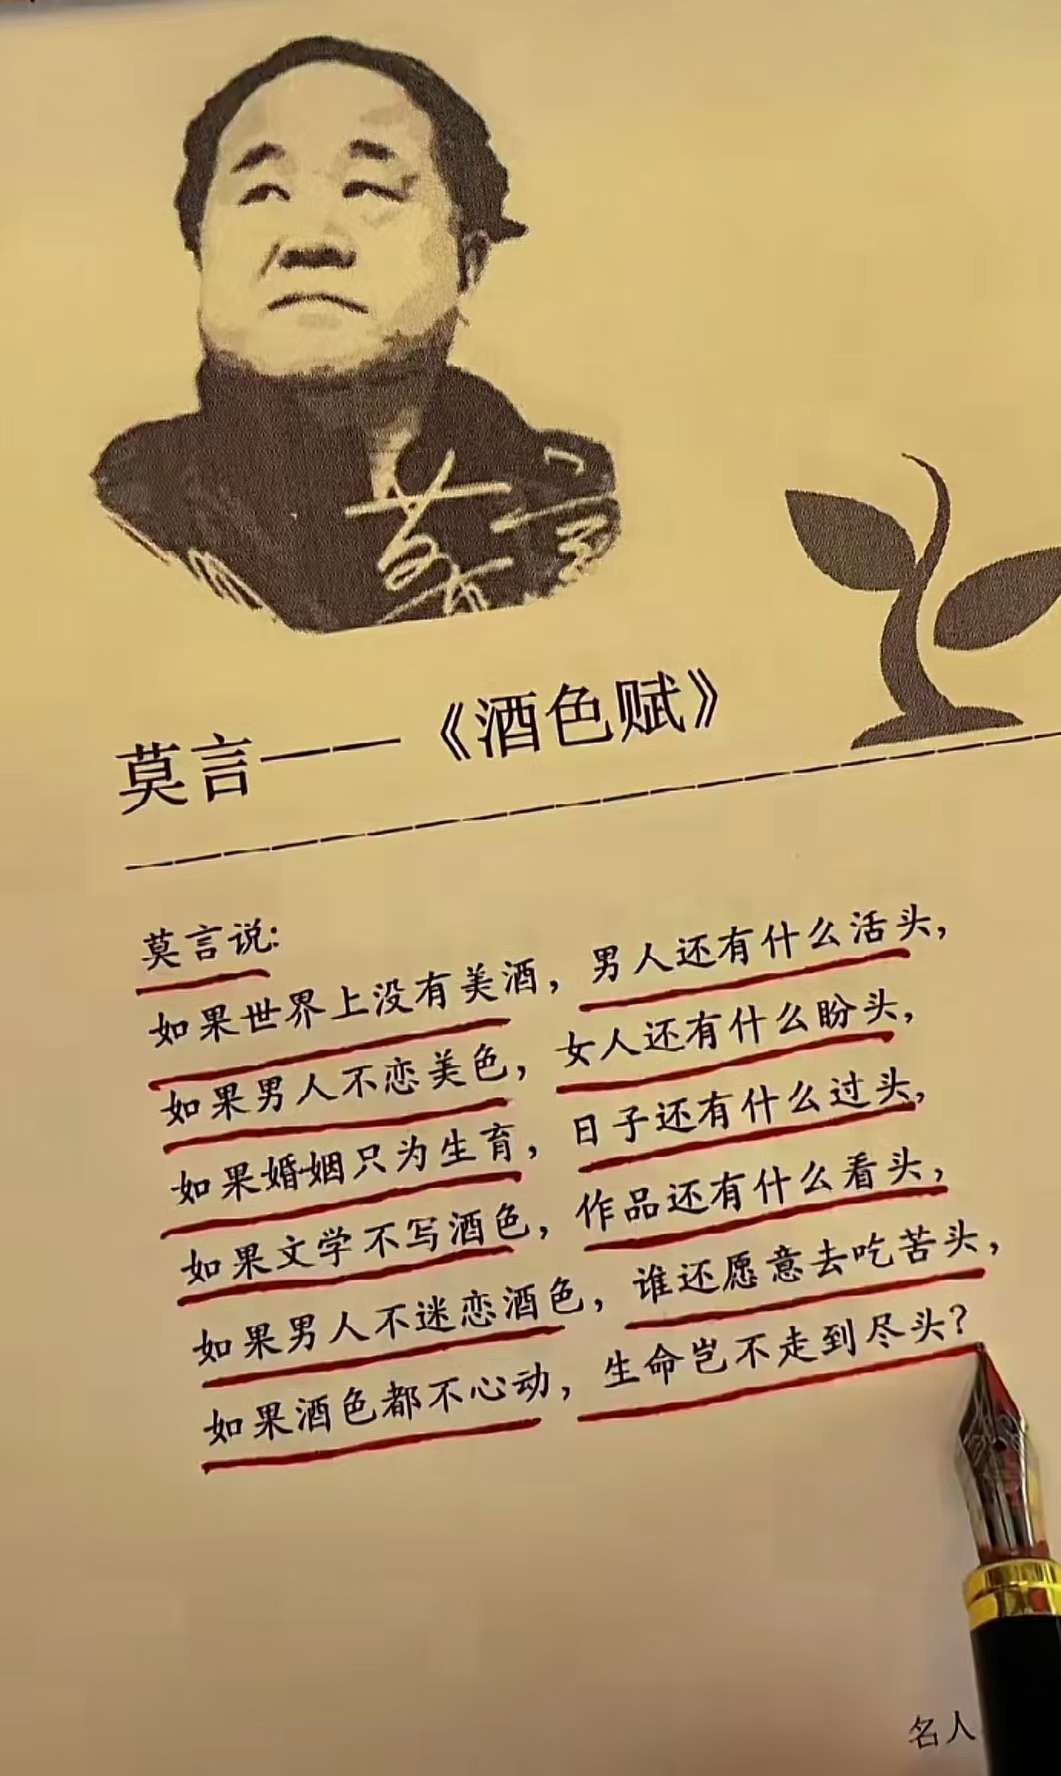 莫言
莫言——《酒色赋》
莫言说:
如果世界上没有美酒，男人还有什么活头，
如果男人不恋美色，女人还有什么盼头，
如果婚姻只为生育，日子还有什么过头，
如果文学不写酒色，作品还有什么看头，
如果男人不迷恋酒色，谁还愿意去吃苦头，
如果酒色都不心动，生命岂不走到尽头？
名人